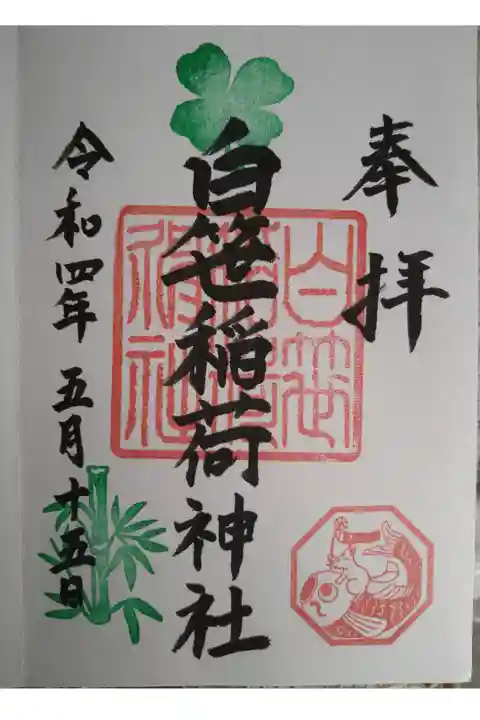 奉拝
白笹稲荷神社
白笹稲荷神社
令和四年 五月十五日